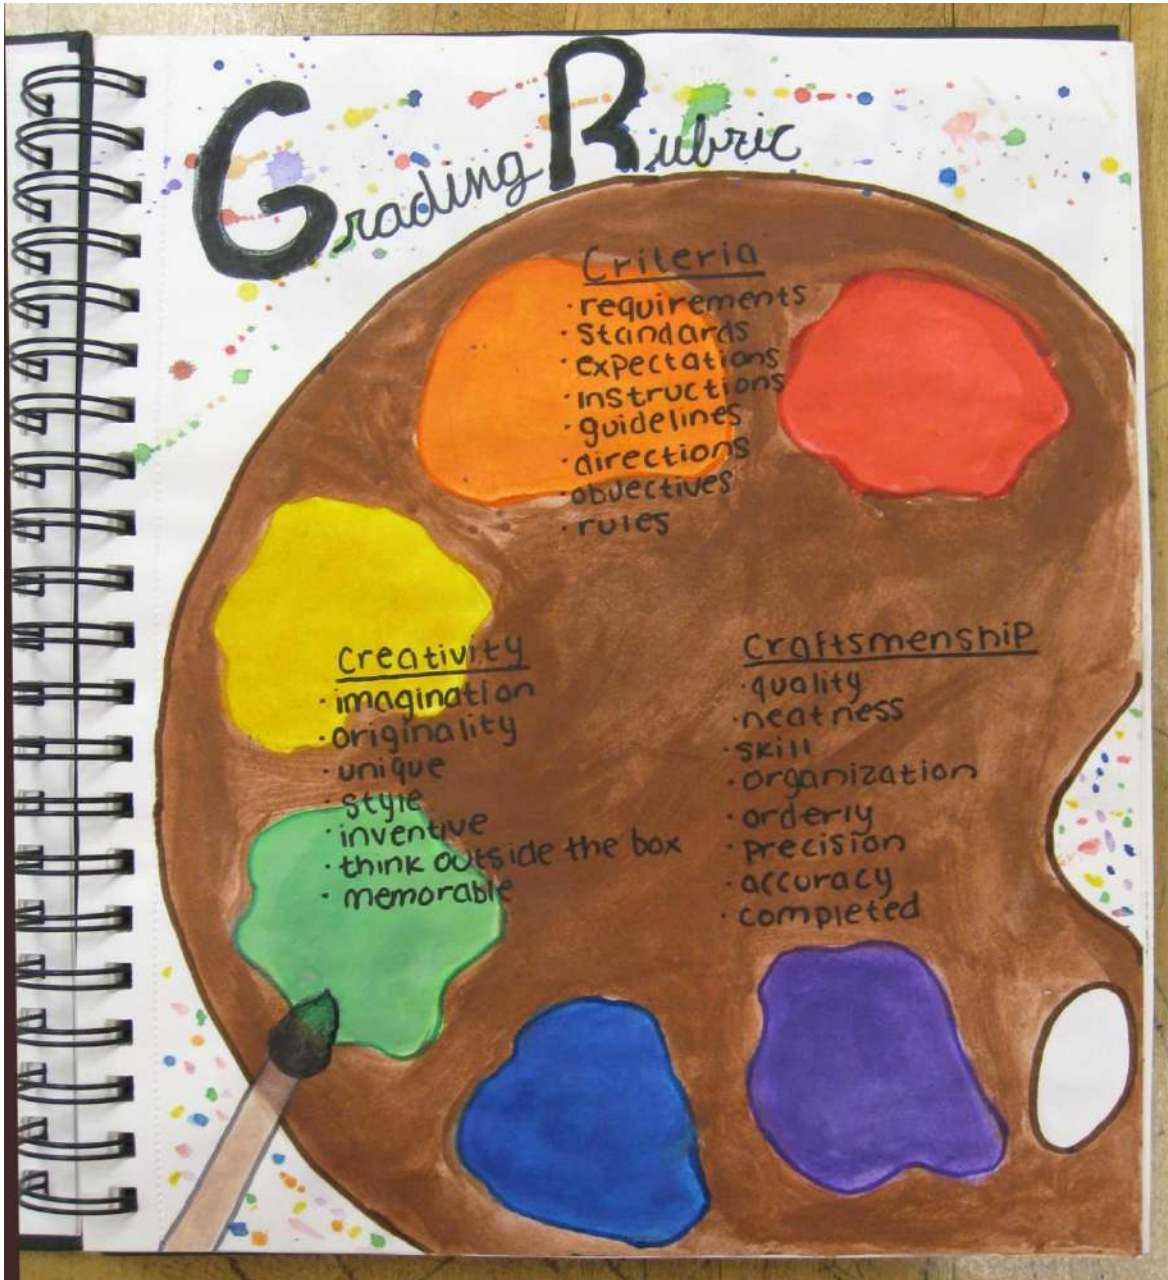 Grading Rubric
Criteria
· requirements
· standards
· expectations
· instructions
· guidelines
· directions
· objectives
· rules
Creativity
· imagination
· originality
· unique
· style
· inventive
· think outside the box
· memorable
Craftsmenship
· quality
· neatness
· skill
· organization
· orderly
· precision
· accuracy
· completed